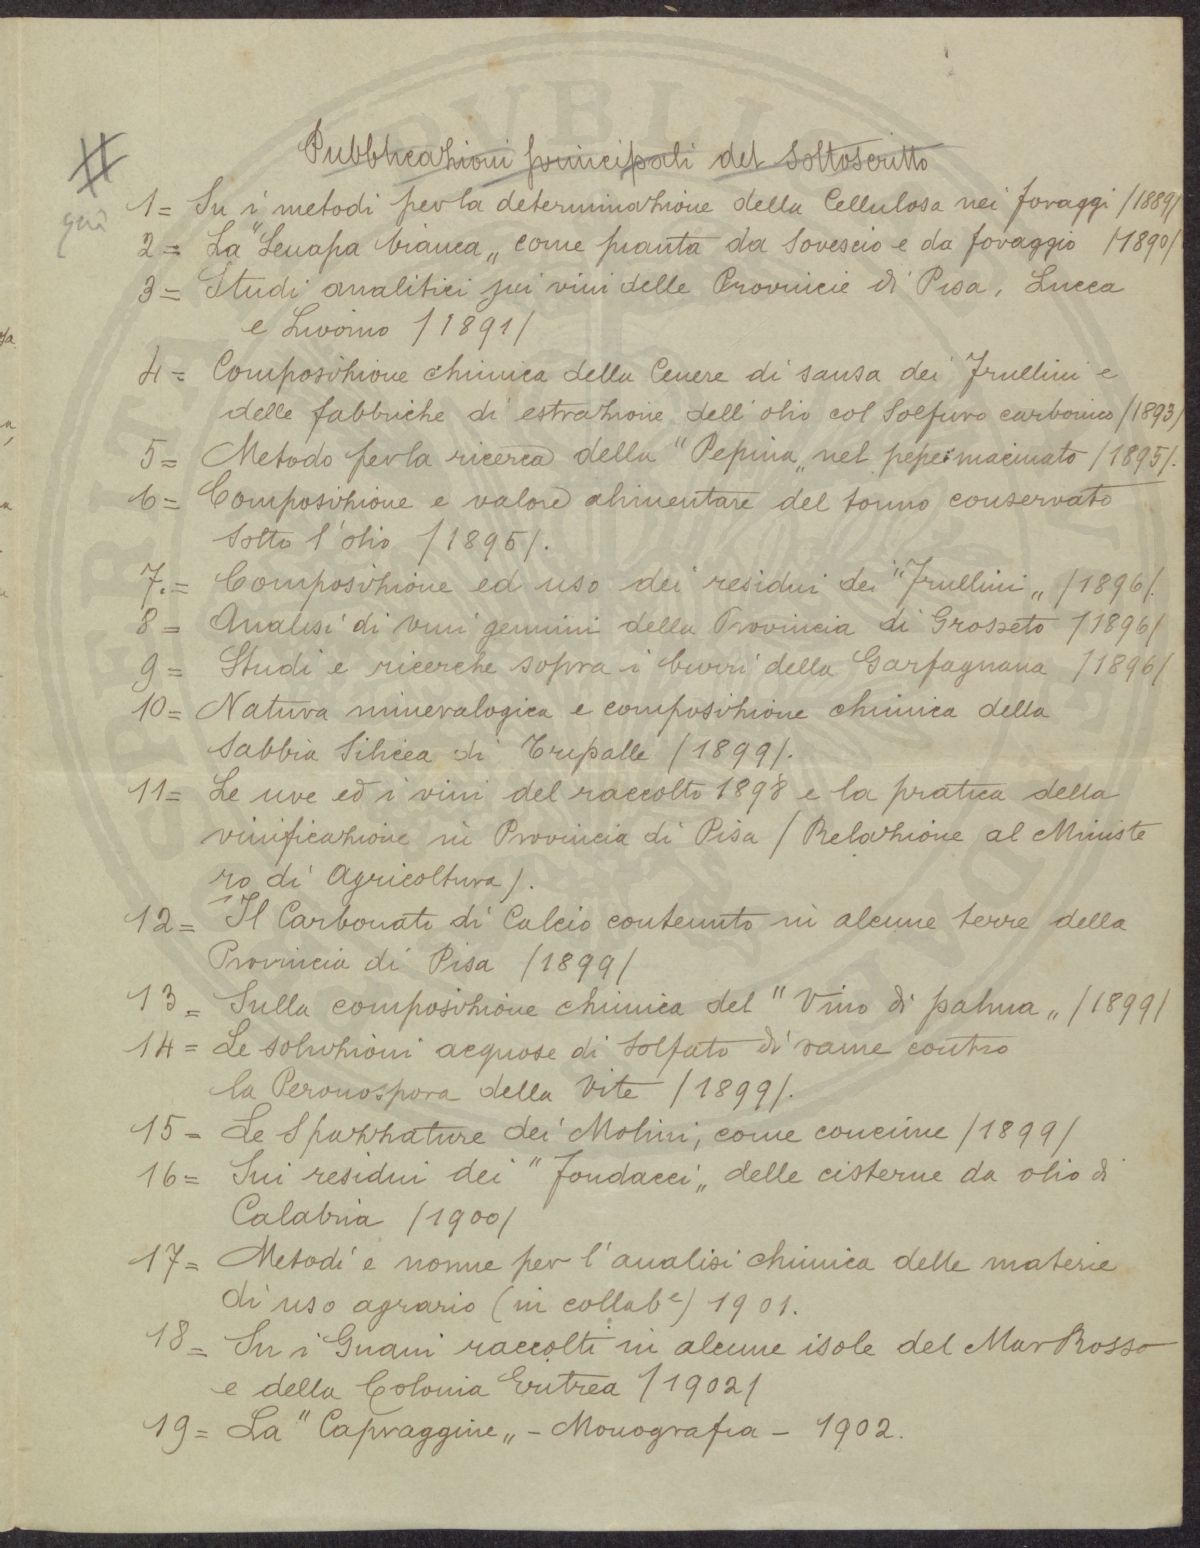 Pubblicazioni principali del sottoscritto
qui
1= Su i metodi per la determinazione della Cellulosa nei foraggi /1889/
2= La "Senapa bianca„ come pianta da sovescio e da foraggio /1890/
3= Studi analitici sui vini delle Provincie di Pisa, Lucca
e Livorno /1891/
4= Composizione chimica della Cenere di sansa dei Frullini e
delle fabbriche di estrazione dell'olio col Solfuro carbonico /1893/
5= Metodo per la ricerca della "Pepina„ nel pepe macinato /1895/.
6= Composizione e valore alimentare del tonno conservato
sotto l'olio /1895/.
7.= Composizione ed uso dei residui dei "Frullini„ /1896/.
8= Analisi di vini genuini della Provincia di Grosseto /1896/
9= Studi e ricerche sopra i burri della Garfagnana /1896/
10= Natura mineralogica e composizione chimica della
Sabbia Silicea di Tripalle /1899/.
11= Le uve ed i vini del raccolto 1898 e la pratica della
vinificazione in Provincia di Pisa / Relazione al Ministe
ro di Agricoltura/.
12= Il Carbonato di Calcio contenuto in alcune terre della
Provincia di Pisa /1899/
13= Sulla composizione chimica del "Vino di palma„ /1899/
14= Le soluzioni acquose di Solfato di rame contro
la Peronospora della Vite /1899/.
15= Le Spazzature dei Molini, come concime /1899/
16= Sui residui dei "Fondacci„ delle cisterne da olio di
Calabria /1900/
17= Metodi e norme per l'analisi chimica delle materie
di uso agrario (in collabe) 1901.
18= Su i Guani raccolti in alcune isole del Mar Rosso
e della Colonia Eritrea /1902/
19= La "Capraggine„ - Monografia - 1902.